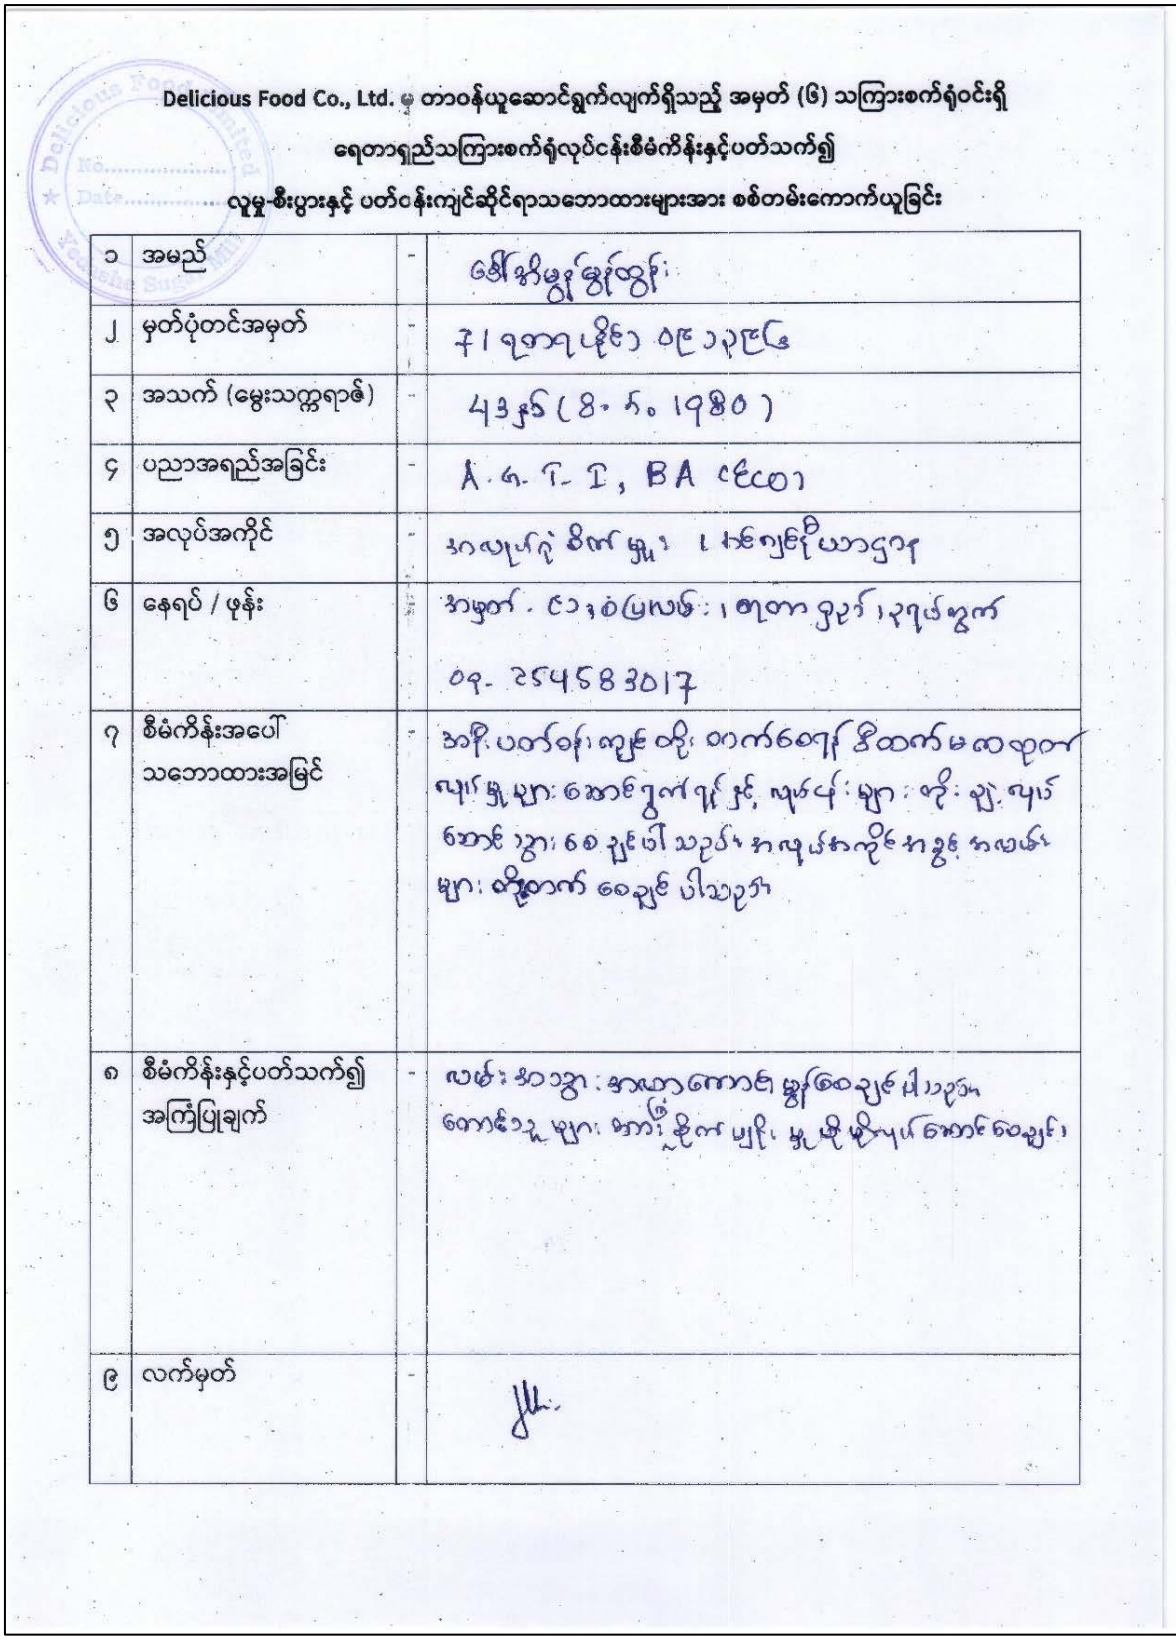 Delicious Food Limited
No....................
Date..................
Yedashe Sugar Mill
Delicious Food Co., Ltd. မှ တာဝန်ယူဆောင်ရွက်လျက်ရှိသည့် အမှတ် (၆) သကြားစက်ရုံဝင်းရှိ
ရေတာရှည်သကြားစက်ရုံလုပ်ငန်းစီမံကိန်းနှင့်ပတ်သက်၍
လူမှု-စီးပွားနှင့် ပတ်ဝန်းကျင်ဆိုင်ရာသဘောထားများအား စစ်တမ်းကောက်ယူခြင်း
၁ အမည် - ဒေါ်အိမွန်မွန်ထွန်း
၂ မှတ်ပုံတင်အမှတ် - ၇/ရတရ(နိုင်)
၃ အသက် (မွေးသက္ကရာဇ်) - 43နှစ် (8. 1980)
၄ ပညာအရည်အခြင်း - A.G.T.I, BA
၅ အလုပ်အကိုင် - အလုပ်ရုံစိတ်မှူး၊ အင်ဂျင်နီယာဌာန
၆ နေရပ် / ဖုန်း - အမှတ် စံပြလမ်း၊ ရေတာရှည်
09- 254583017
၇ စီမံကိန်းအပေါ် - အနီးပတ်ဝန်းကျင် တိုးတက်စေရန် ဒီထက်မက
သဘောထားအမြင် လုပ်မှုများဆောင်ရွက်ရန်နှင့် လုပ်ငန်းများတိုးချဲ့လုပ်
ဆောင်သွားစေချင်ပါသည်။ အလုပ်အကိုင်အခွင့်အလမ်း
များ တိုးတက်စေချင်ပါသည်။
၈ စီမံကိန်းနှင့်ပတ်သက်၍ - လမ်းအသွားအလာကောင်းမွန်စေချင်ပါသည်။
အကြံပြုချက် တောင်သူများအား စိုက်ပျိုးမှုပိုမိုလုပ်ဆောင်စေချင်
၉ လက်မှတ် -